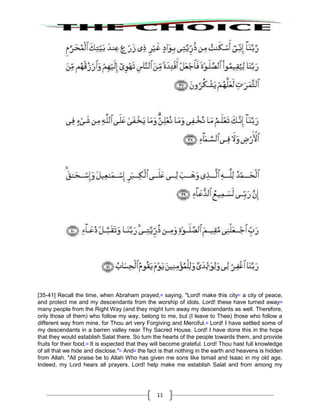 THE CHOICE
رَّبَّنَآ إِنِّىٓ أَسْكَنتُ مِن ذُرِّيَّتِى بِوَادٍ غَيْرِ ذِى زَرْعٍ عِندَ بَيْتِكَ ٱلْمُحَرَّمِ
رَبَّنَا لِيُقِيمُوا۟ ٱلصَّلَوٰةَ فَٱجْعَلْ أَفْـِٔدَةً مِّنَ ٱلنَّاسِ تَهْوِىٓ إِلَيْهِمْ وَٱرْزُقْهُم مِّنَ
ٱلثَّمَرَٰتِ لَعَلَّهُمْ يَشْكُرُونَ ﴿٣٧﴾
رَبَّنَآ إِنَّكَ تَعْلَمُ مَا نُخْفِى وَمَا نُعْلِنُ ۗ وَمَا يَخْفَىٰ عَلَى ٱللَّهِ مِن شَىْءٍ فِى
ٱلْأَرْضِ وَلَا فِى ٱلسَّمَآءِ ﴿٣٨﴾
ٱلْحَمْدُ لِلَّهِ ٱلَّذِى وَهَبَ لِى عَلَى ٱلْكِبَرِ إِسْمَـٰعِيلَ وَإِسْحَـٰقَ ۚ
إِنَّ رَبِّى لَسَمِيعُ ٱلدُّعَآءِ ﴿٣٩﴾
رَبِّ ٱجْعَلْنِى مُقِيمَ ٱلصَّلَوٰةِ وَمِن ذُرِّيَّتِى ۚ رَبَّنَا وَتَقَبَّلْ دُعَآءِ ﴿٤٠﴾
رَبَّنَا ٱغْفِرْ لِى وَلِوَٰلِدَىَّ وَلِلْمُؤْمِنِينَ يَوْمَ يَقُومُ ٱلْحِسَابُ ﴿٤١﴾
[35-41] Recall the time, when Abraham prayed, saying, "Lord! make this city a city of peace,
and protect me and my descendants from the worship of idols. Lord! these have turned away
many people from the Right Way (and they might turn away my descendants as well. Therefore,
only those of them) who follow my way, belong to me, but (I leave to Thee) those who follow a
different way from mine, for Thou art very Forgiving and Merciful. Lord! I have settled some of
my descendants in a barren valley near Thy Sacred House. Lord! I have done this in the hope
that they would establish Salat there. So turn the hearts of the people towards them, and provide
fruits for their food. It is expected that they will become grateful. Lord! Thou hast full knowledge
of all that we hide and disclose."- And the fact is that nothing in the earth and heavens is hidden
from Allah. "All praise be to Allah Who has given me sons like Ismail and Isaac in my old age.
Indeed, my Lord hears all prayers. Lord! help make me establish Salat and from among my
11